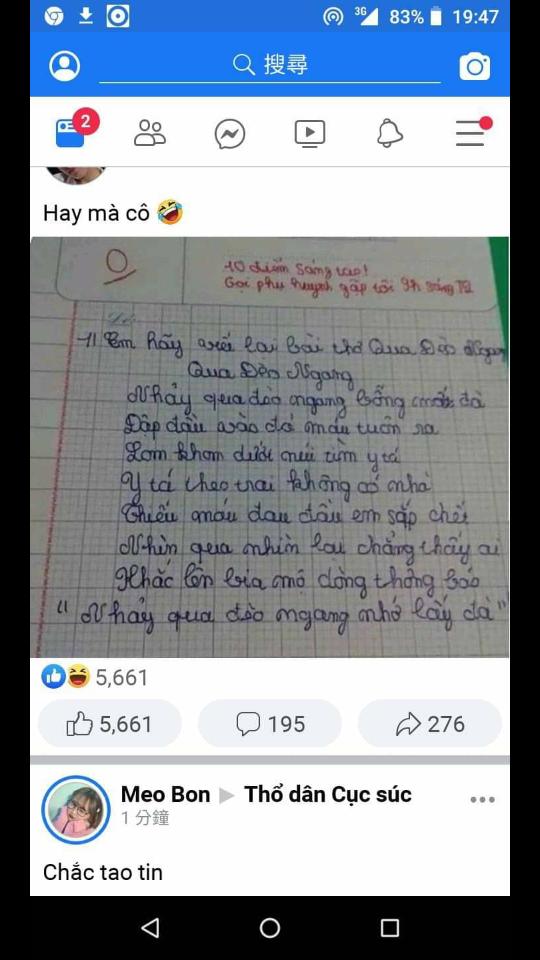 3G 83% 19:47
搜尋
2
Hay mà cô 🤣
0
10 điểm sáng tạo!
Gọi phụ huynh gặp tôi 9h sáng T2
1) Em hãy viết lại bài thơ Qua Đèo Ngang
Qua Đèo Ngang
Nhảy qua đèo ngang bỗng mất đà
Đập đầu vào đá máu tuôn ra
Lom khom dưới núi tìm y tá
Y tá theo trai không có nhà
Thiếu máu đau đầu em sắp chết
Nhìn qua nhìn lại chẳng thấy ai
Khắc lên bia mộ dòng thông báo
"Nhảy qua đèo ngang nhớ lấy đà"
5,661
5,661 195 276
Meo Bon ▶ Thổ dân Cục súc
1 分鐘
Chắc tao tin